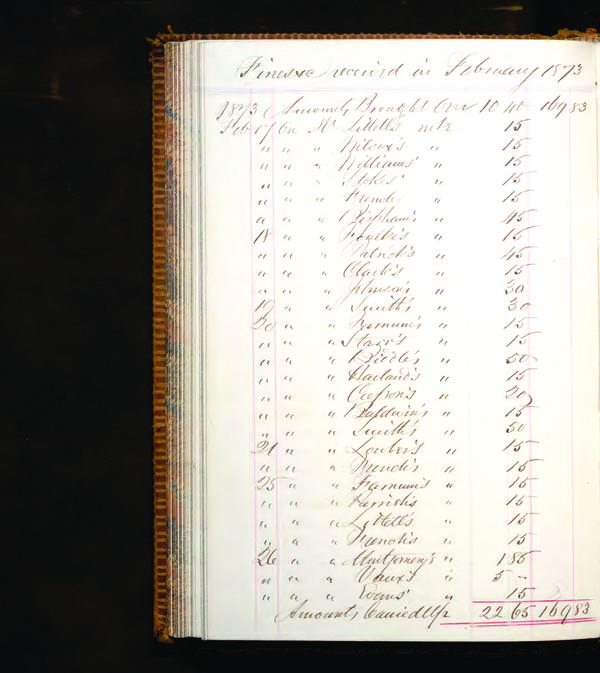 Fines &c received in February 1873
1873 Amounts Brought Over 10 40 169 83
Feb 17 on Mr Littell's note 15
" " " Wilcox's " 15
" " " Williams' " 15
" " " Stokes' " 15
" " " French " 15
" " " Bispham's " 45
18 " " Foulke's " 15
" " " Patrick's " 45
" " " Clark's " 15
" " " Johnson's " 30
19 " " Smith's " 30
20 " " Farnum's " 15
" " " Starr's " 15
" " " Biddle's " 50
" " " Harland's " 15
" " " Cresson's " 20
" " " Baldwin's " 15
" " " Smith's " 50
21 " " " 15
" " " French's " 15
25 " " Farnum's " 15
" " " Parrish's " 15
" " " Littell's " 15
" " " French's " 15
26 " " Montgomery's " 185
" " " Vaux's " 5 "
" " " Evans' " 15
Amounts Carried Up 22 65 169 83